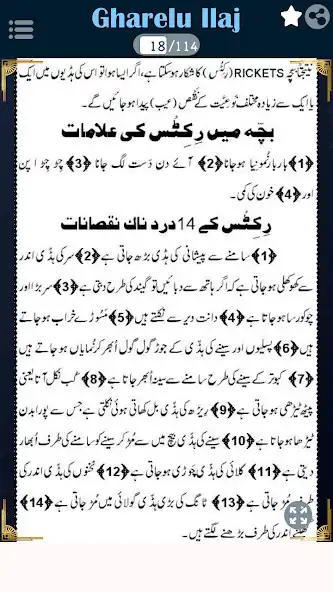 Gharelu Ilaj
18 /114
نتیجتاً بچہ RICKETS (رِکِٹُس) کا شکار ہو سکتا ہے، اگر ایسا ہوا تو اس کی ہڈیوں میں ایک
یا ایک سے زیادہ مختلف نوعیّت کے نقص (عیب) پیدا ہو جائیں گے۔
بچّہ میں رِکِٹُس کی علامات
﴿1﴾ بار بار نُمونیا ہو جانا ﴿2﴾ آئے دن دَست لگ جانا ﴿3﴾ چِڑچِڑا پن
اور ﴿4﴾ خون کی کمی۔
رِکِٹُس کے 14 درد ناک نقصانات
﴿1﴾ سامنے سے پیشانی کی ہڈی بڑھ جاتی ہے ﴿2﴾ سر کی ہڈی اندر
سے کھوکھلی ہو جاتی ہے کہ اگر ہاتھ سے دبائیں تو گیند کی طرح دبتی ہے ﴿3﴾ سر بڑا اور
چوکور سا ہو جاتا ہے ﴿4﴾ دانت دیر سے نکلتے ہیں ﴿5﴾ مَسُوڑے خراب ہو جاتے
ہیں ﴿6﴾ پسلیوں اور سینے کی ہڈی کے جوڑ گول گول اُبھر کر نُمایاں ہو جاتے ہیں
﴿7﴾ کبوتر کے سینے کی طرح سامنے سے سینہ اُبھر جاتا ہے ﴿8﴾ کُب نکل آتا یعنی
پیٹھ ٹیڑھی ہو جاتی ہے ﴿9﴾ ریڑھ کی ہڈی بل کھاتی ہوئی نکلتی ہے جس سے پورا بدن
ٹیڑھا ہو جاتا ہے ﴿10﴾ سینے کی ہڈی بیچ میں سے مُڑ کر سینے کو سامنے کی طرف اُبھار
دیتی ہے ﴿11﴾ کلائی کی ہڈی چوڑی ہو جاتی ہے ﴿12﴾ ٹخنوں کی ہڈی اندر کی
طرف مُڑ جاتی ہے ﴿13﴾ ٹانگ کی بڑی ہڈی گولائی میں مُڑ جاتی ہے ﴿14﴾
گھٹنے اندر کی طرف بڑھنے لگتے ہیں۔